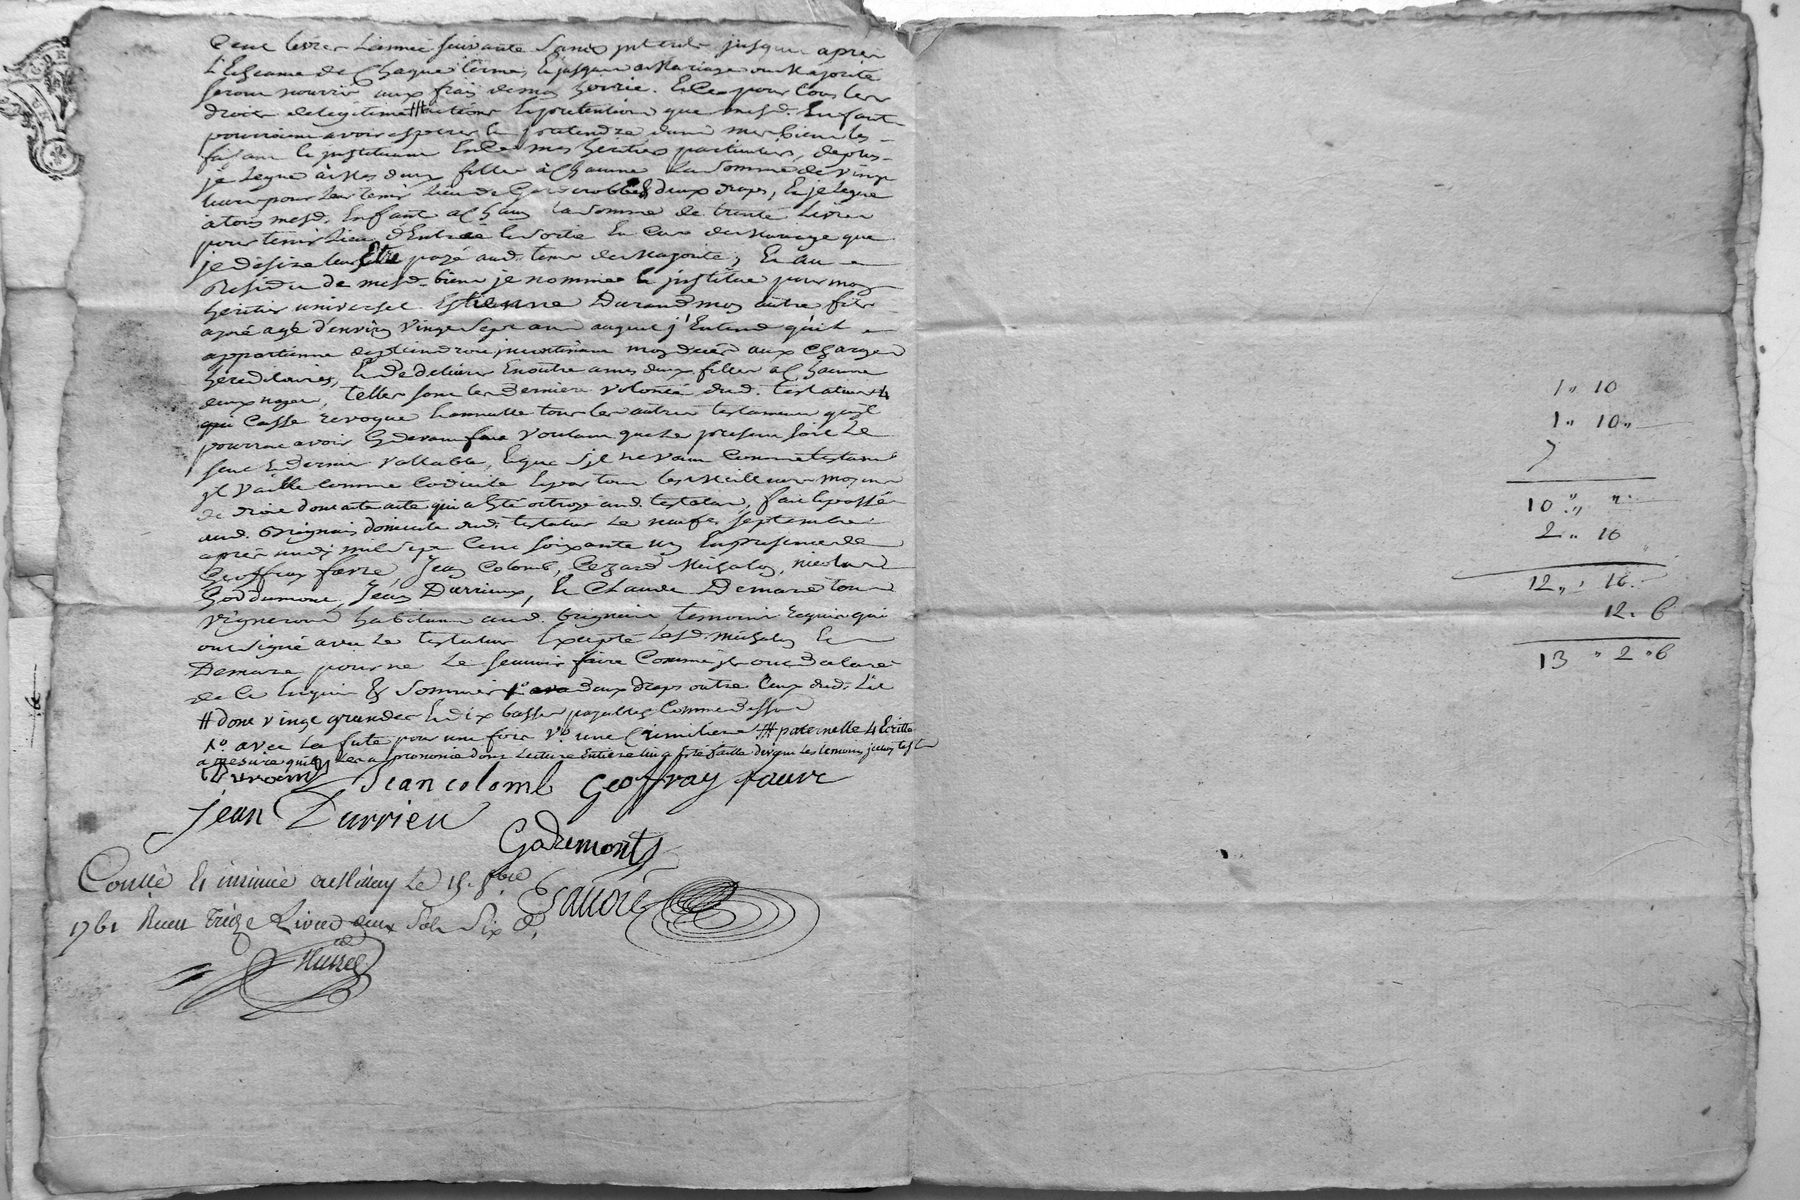 Cent livres L'année suivante Sans jnterets jusques apres
L'Echeance de Chaque terme, Et jusques a Mariage ou Majorité
seront nourris aux frais de mon heritier. Et Ce pour tous leurs
droits de legitime # actions Et pretentions que mesd. Enfants
pourroient avoir esperer Et pretendre dans mes biens les
faisant Et jnstituant En Ce mes heritiers particuliers, de plus
je Legue à Mes deux filles à Chacune La Somme de vingt
livres pour Leur tenir Lieu de Garderobbe & deux draps, Et je Legue
à tous mesd. Enfants a Chacun la Somme de trente Livres
pour tenir Lieu d'Entrée Et Sortie En Cas de Mariage que
je désire leur Etre payé aud. tems de Majorité, Et Au
Residu de mesd. biens je nomme Et jnstitue pour mon
heritier universel Estienne Durand mon autre fils
ayné agé d'environ vingt Sept ans auquel j'Entend qu'il
appartienne des Lein droit jncontinent mon decès aux Charges
hereditaires, Et De delivrer En outre a mes deux filles a Chacune
deux napes, telles sont les dernieres volontés dud. testateur 4
qui Casse revoque Et annulle tous les autres testaments qu'jl
pourroit avoir Cy devant fait Voulant que Le present soit Le
seul Et dernier vallable, Et que s'jl ne vaut Comme testament
jl Vaille Comme Codicile Et par tous les Meilleurs moyens
de droit dont acte qui a Eté octroyé aud. testateur, fait Et passé
aud. Brignais domicile dud. testateur Le neuf Septembre
après midy mil Sept Cent Soixante un En presence de
Geoffray favre, Jean Colomb, Cezard Michalon, nicolas
Goddumont, Jean Durrieux, Et Claude Demare tous
vignerons habitans aud. Brignais temoins requis qui
ont signé avec Le testateur Excepté Lesd. Michalon Et
Demare pour ne Le sçavoir faire Comme jls ont declaré
de Ce Enquis & Sommés 1° deux draps outre Ceux dud. Lit
# dont vingt grandes Et dix basses payables Comme dessus
1° avec La fute pour une fois V° une Cremiliere ## paternelle 4 Ecritte
a mesure qu'il Les a prononcé dont Lecture Entiere luy a Eté faitte devant Les temoins
Jean colomb Geoffray faure
Jean Durrieu
Godemont
Conllé Et insinué a Millery Le 15. 7bre
1761 Receu Treize Livres deux Sols Six d.
1 " 10
1 " 10 "
7
10 " "
2 " 16
12 " 16
12 " 6
13 " 2 " 6